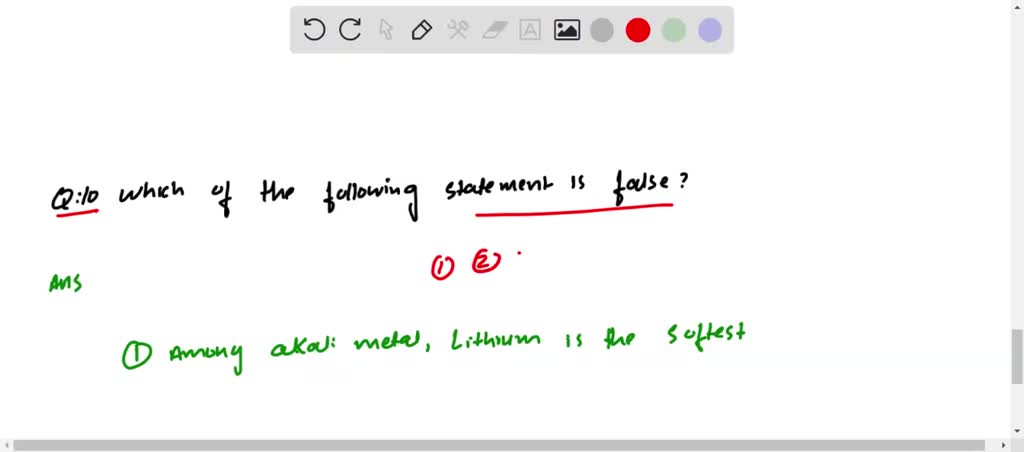 Q:10 which of the following statement is false?
① ②
Ans
① Among akali metal, Lithium is the softest